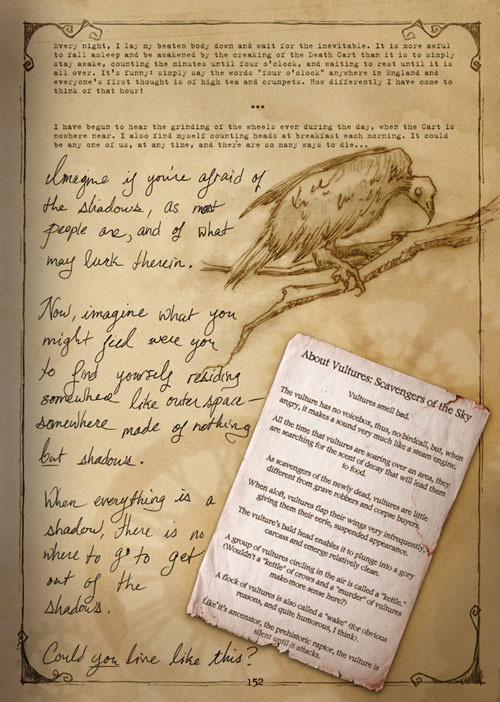 Every night, I lay my beaten body down and wait for the inevitable. It is more awful
to fall asleep and be awakened by the creaking of the Death Cart than it is to simply
stay awake, counting the minutes until four o'clock, and waiting to rest until it is
all over. It's funny: simply say the words "four o'clock" anywhere in England and
everyone's first thought is of high tea and crumpets. How differently I have come to
think of that hour!
***
I have begun to hear the grinding of the wheels even during the day, when the Cart is
nowhere near. I also find myself counting heads at breakfast each morning. It could
be any one of us, at any time, and there are so many ways to die...
Imagine if you're afraid of
the shadows, as most
people are, and of what
may lurk therein.
Now, imagine what you
might feel were you
to find yourself residing
somewhere like outer space—
somewhere made of nothing
but shadows.
When everything is a
shadow, there is no
where to go to get
out of the
shadows.
Could you live like this?
About Vultures: Scavengers of the Sky
Vultures smell bad.
The vulture has no voicebox, thus, no birdcall, but, when
angry, it makes a sound very much like a steam engine.
All the time that vultures are soaring over an area, they
are searching for the scent of decay that will lead them
to food.
As scavengers of the newly dead, vultures are little
different from grave robbers and corpse buyers.
When aloft, vultures flap their wings very infrequently,
giving them their eerie, suspended appearance.
The vulture's bald head enables it to plunge into a gory
carcass and emerge relatively clean.
A group of vultures circling in the air is called a "kettle."
(Wouldn't a "kettle" of crows and a "murder" of vultures
make more sense here?)
A flock of vultures is also called a "wake" (for obvious
reasons, and quite humorous, I think).
Like it's ancenstor, the prehistoric raptor, the vulture is
silent until it attacks.
152